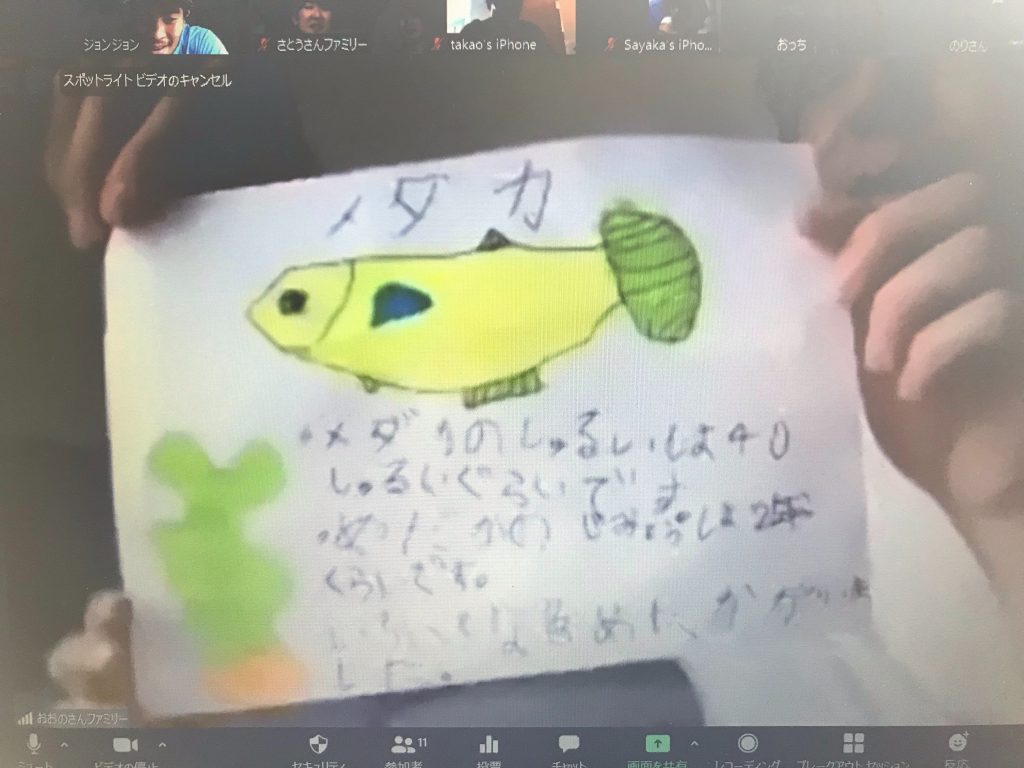 ジョンジョン
さとうさんファミリー
takao's iPhone
Sayaka's iPho...
おっち
のりさん
スポットライト ビデオのキャンセル
メダカ
・メダカのしゅるいしよ40
しゅるいぐらいです。
・めだかの じみょうしよ2年
くらいです。
いろいろな色めだかがいま
した。
おおのさんファミリー
ミュート
ビデオの停止
セキュリティ
参加者
11
投票
チャット
画面を共有
レコーディング
ブレークアウト セッション
反応